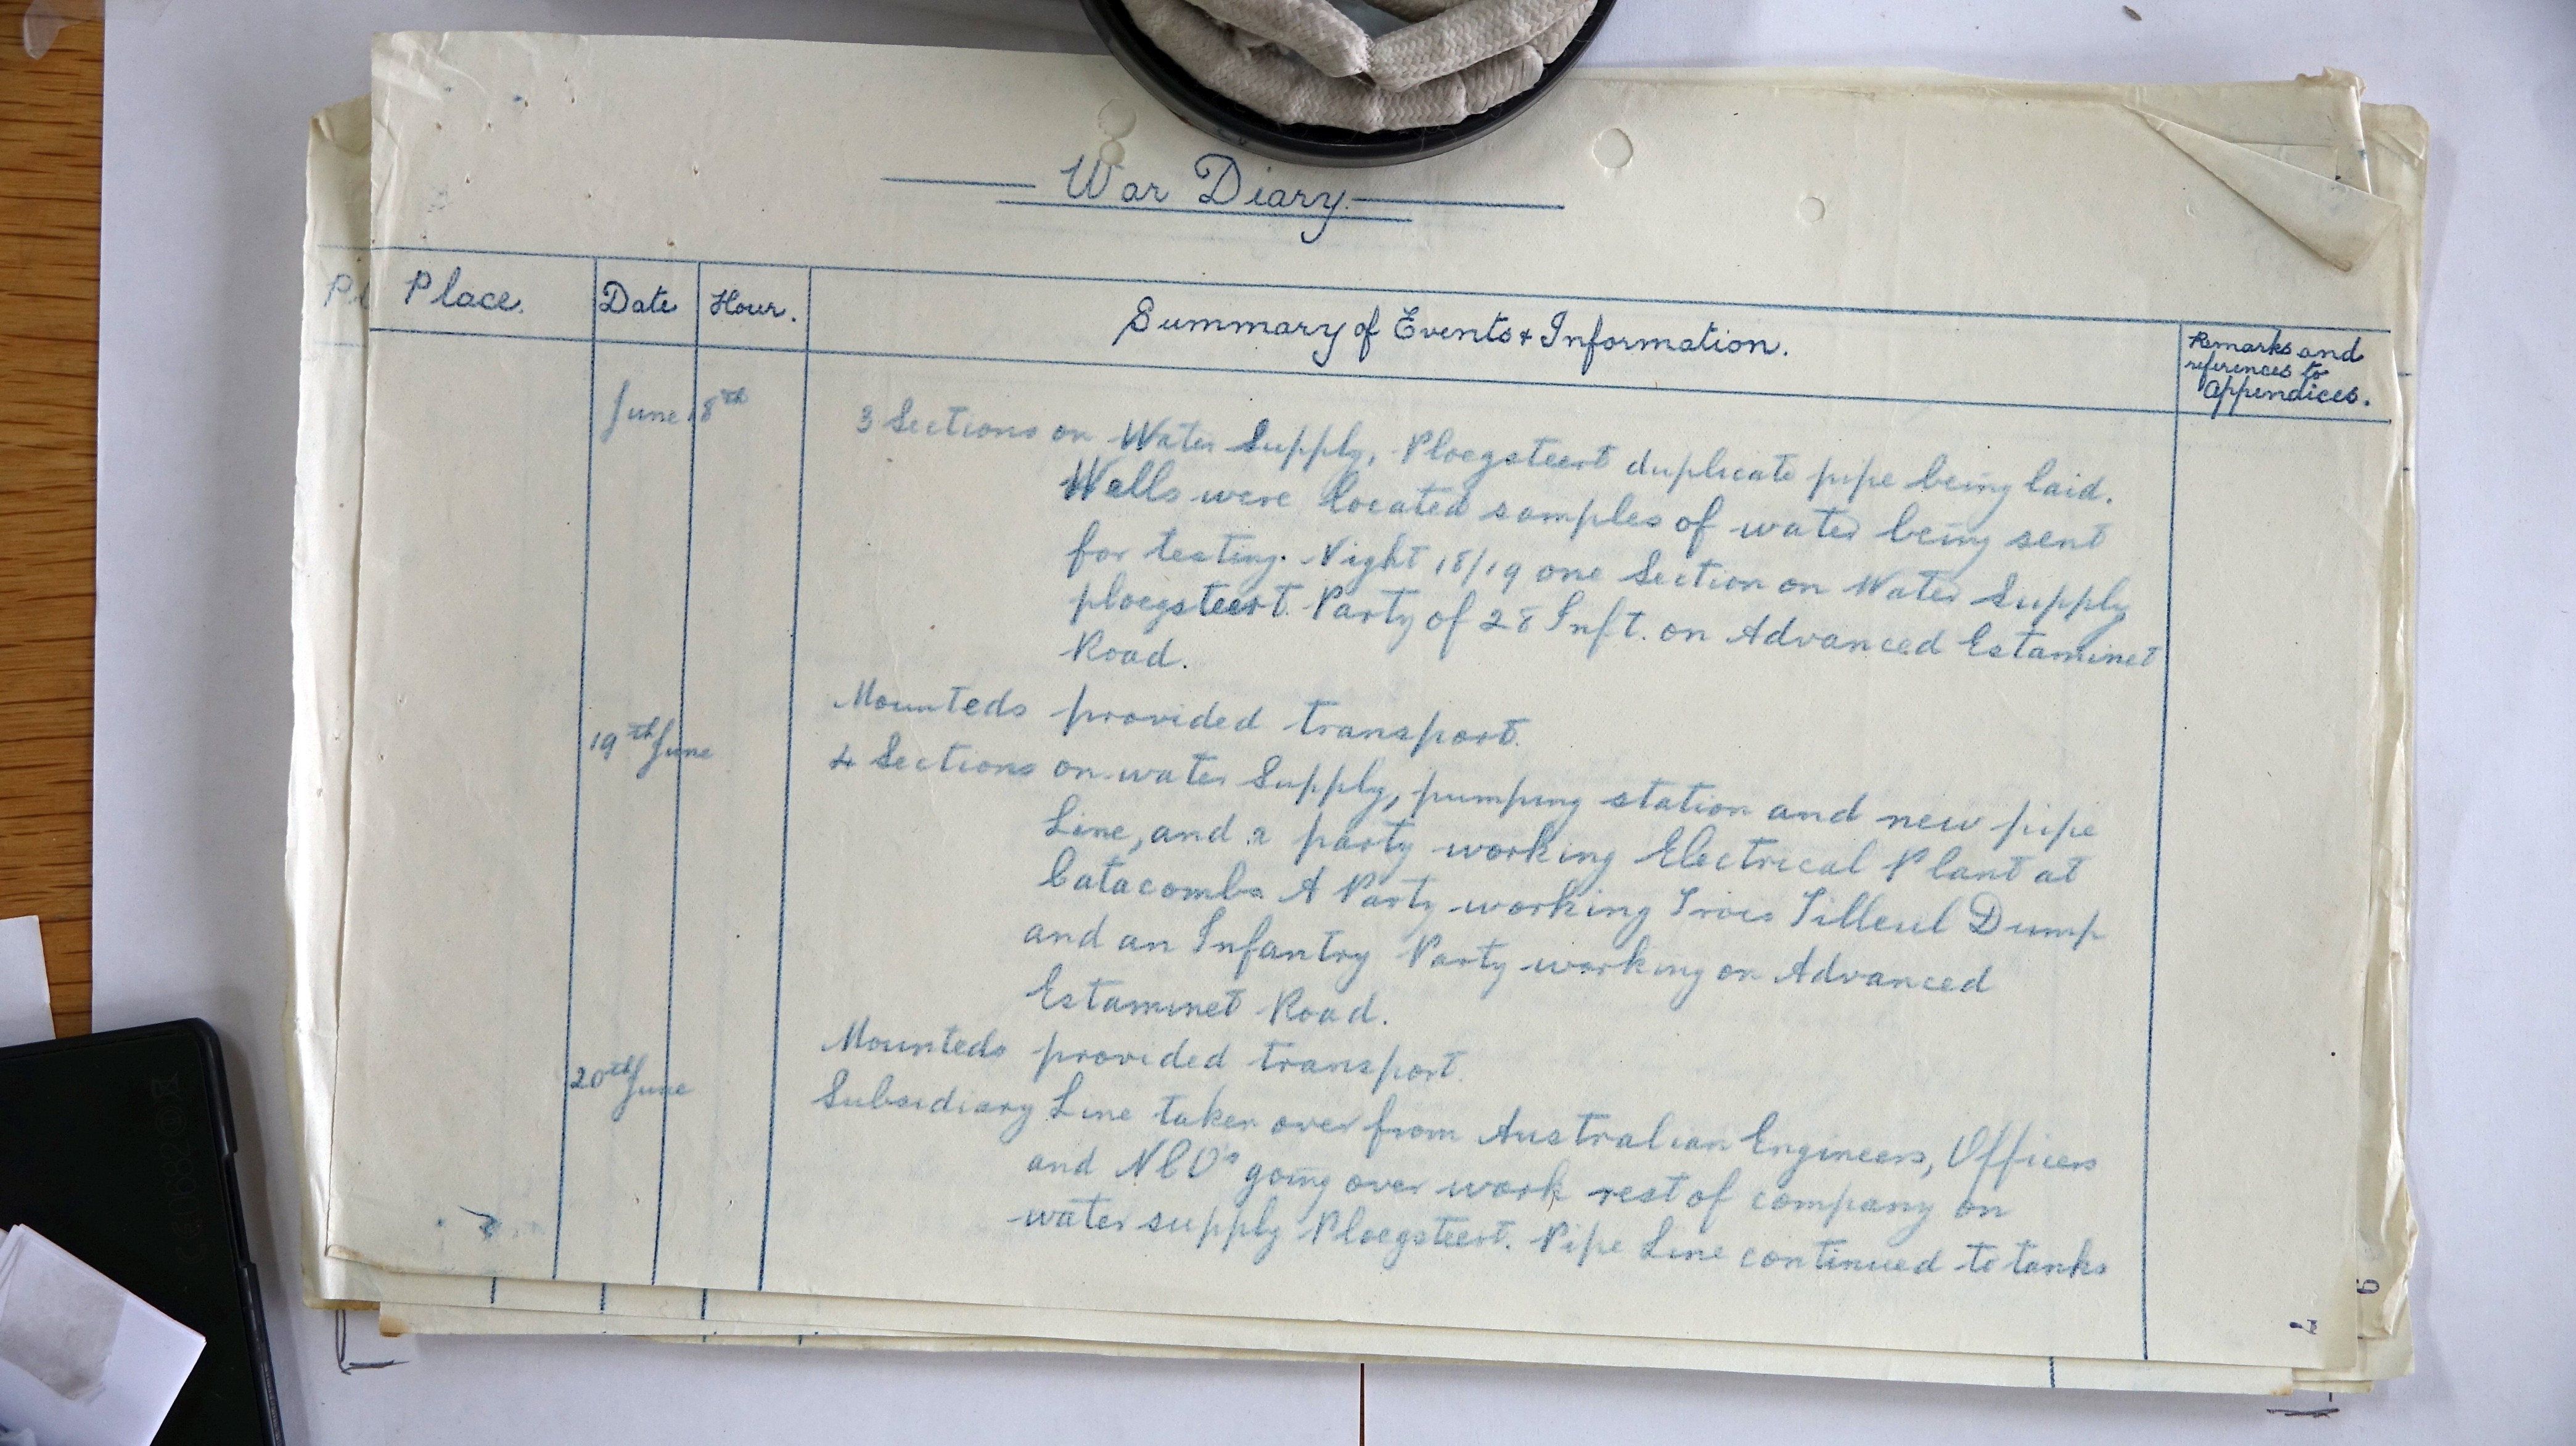 War Diary.
Place. Date Hour. Summary of Events & Information. Remarks and
references to
Appendices.
June 18th 3 Sections on Water Supply, Ploegsteert duplicate pipe being laid.
Wells were located samples of water being sent
for testing. Night 18/19 one Section on Water Supply
ploegsteert. Party of 28 Inft. on Advanced Estaminet
Road.
Mounteds provided transport.
19th June 4 Sections on water Supply, pumping station and new pipe
Line, and a party working Electrical Plant at
Catacombs A Party working Trois Tilleul Dump
and an Infantry Party working on Advanced
Estaminet Road.
Mounteds provided transport.
20th June Subsidiary Line taken over from Australian Engineers, Officers
and NCO's going over work rest of company on
water supply Ploegsteert. Pipe Line continued to tanks
7
6
Pl